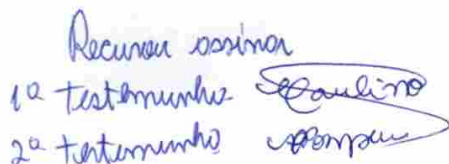 Recusou assinar
1ª testemunha Paulino
2ª testemunha